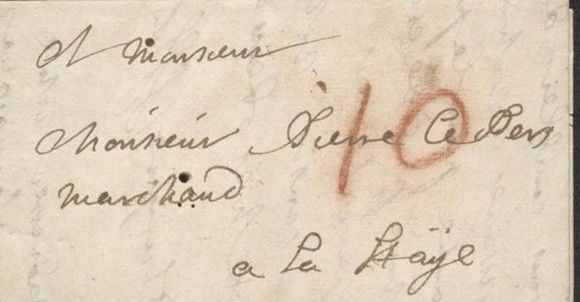 A Monsieur
Monsieur Pierre Le Pers
marchand
10
a La Haÿe